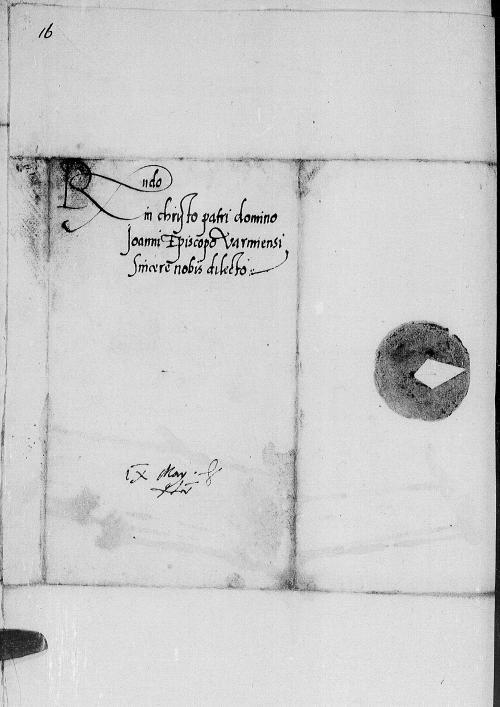 16
Rndo
in christo patri domino
Joanni Episcopo Varmiensi
sincere nobis dilecto
IX May